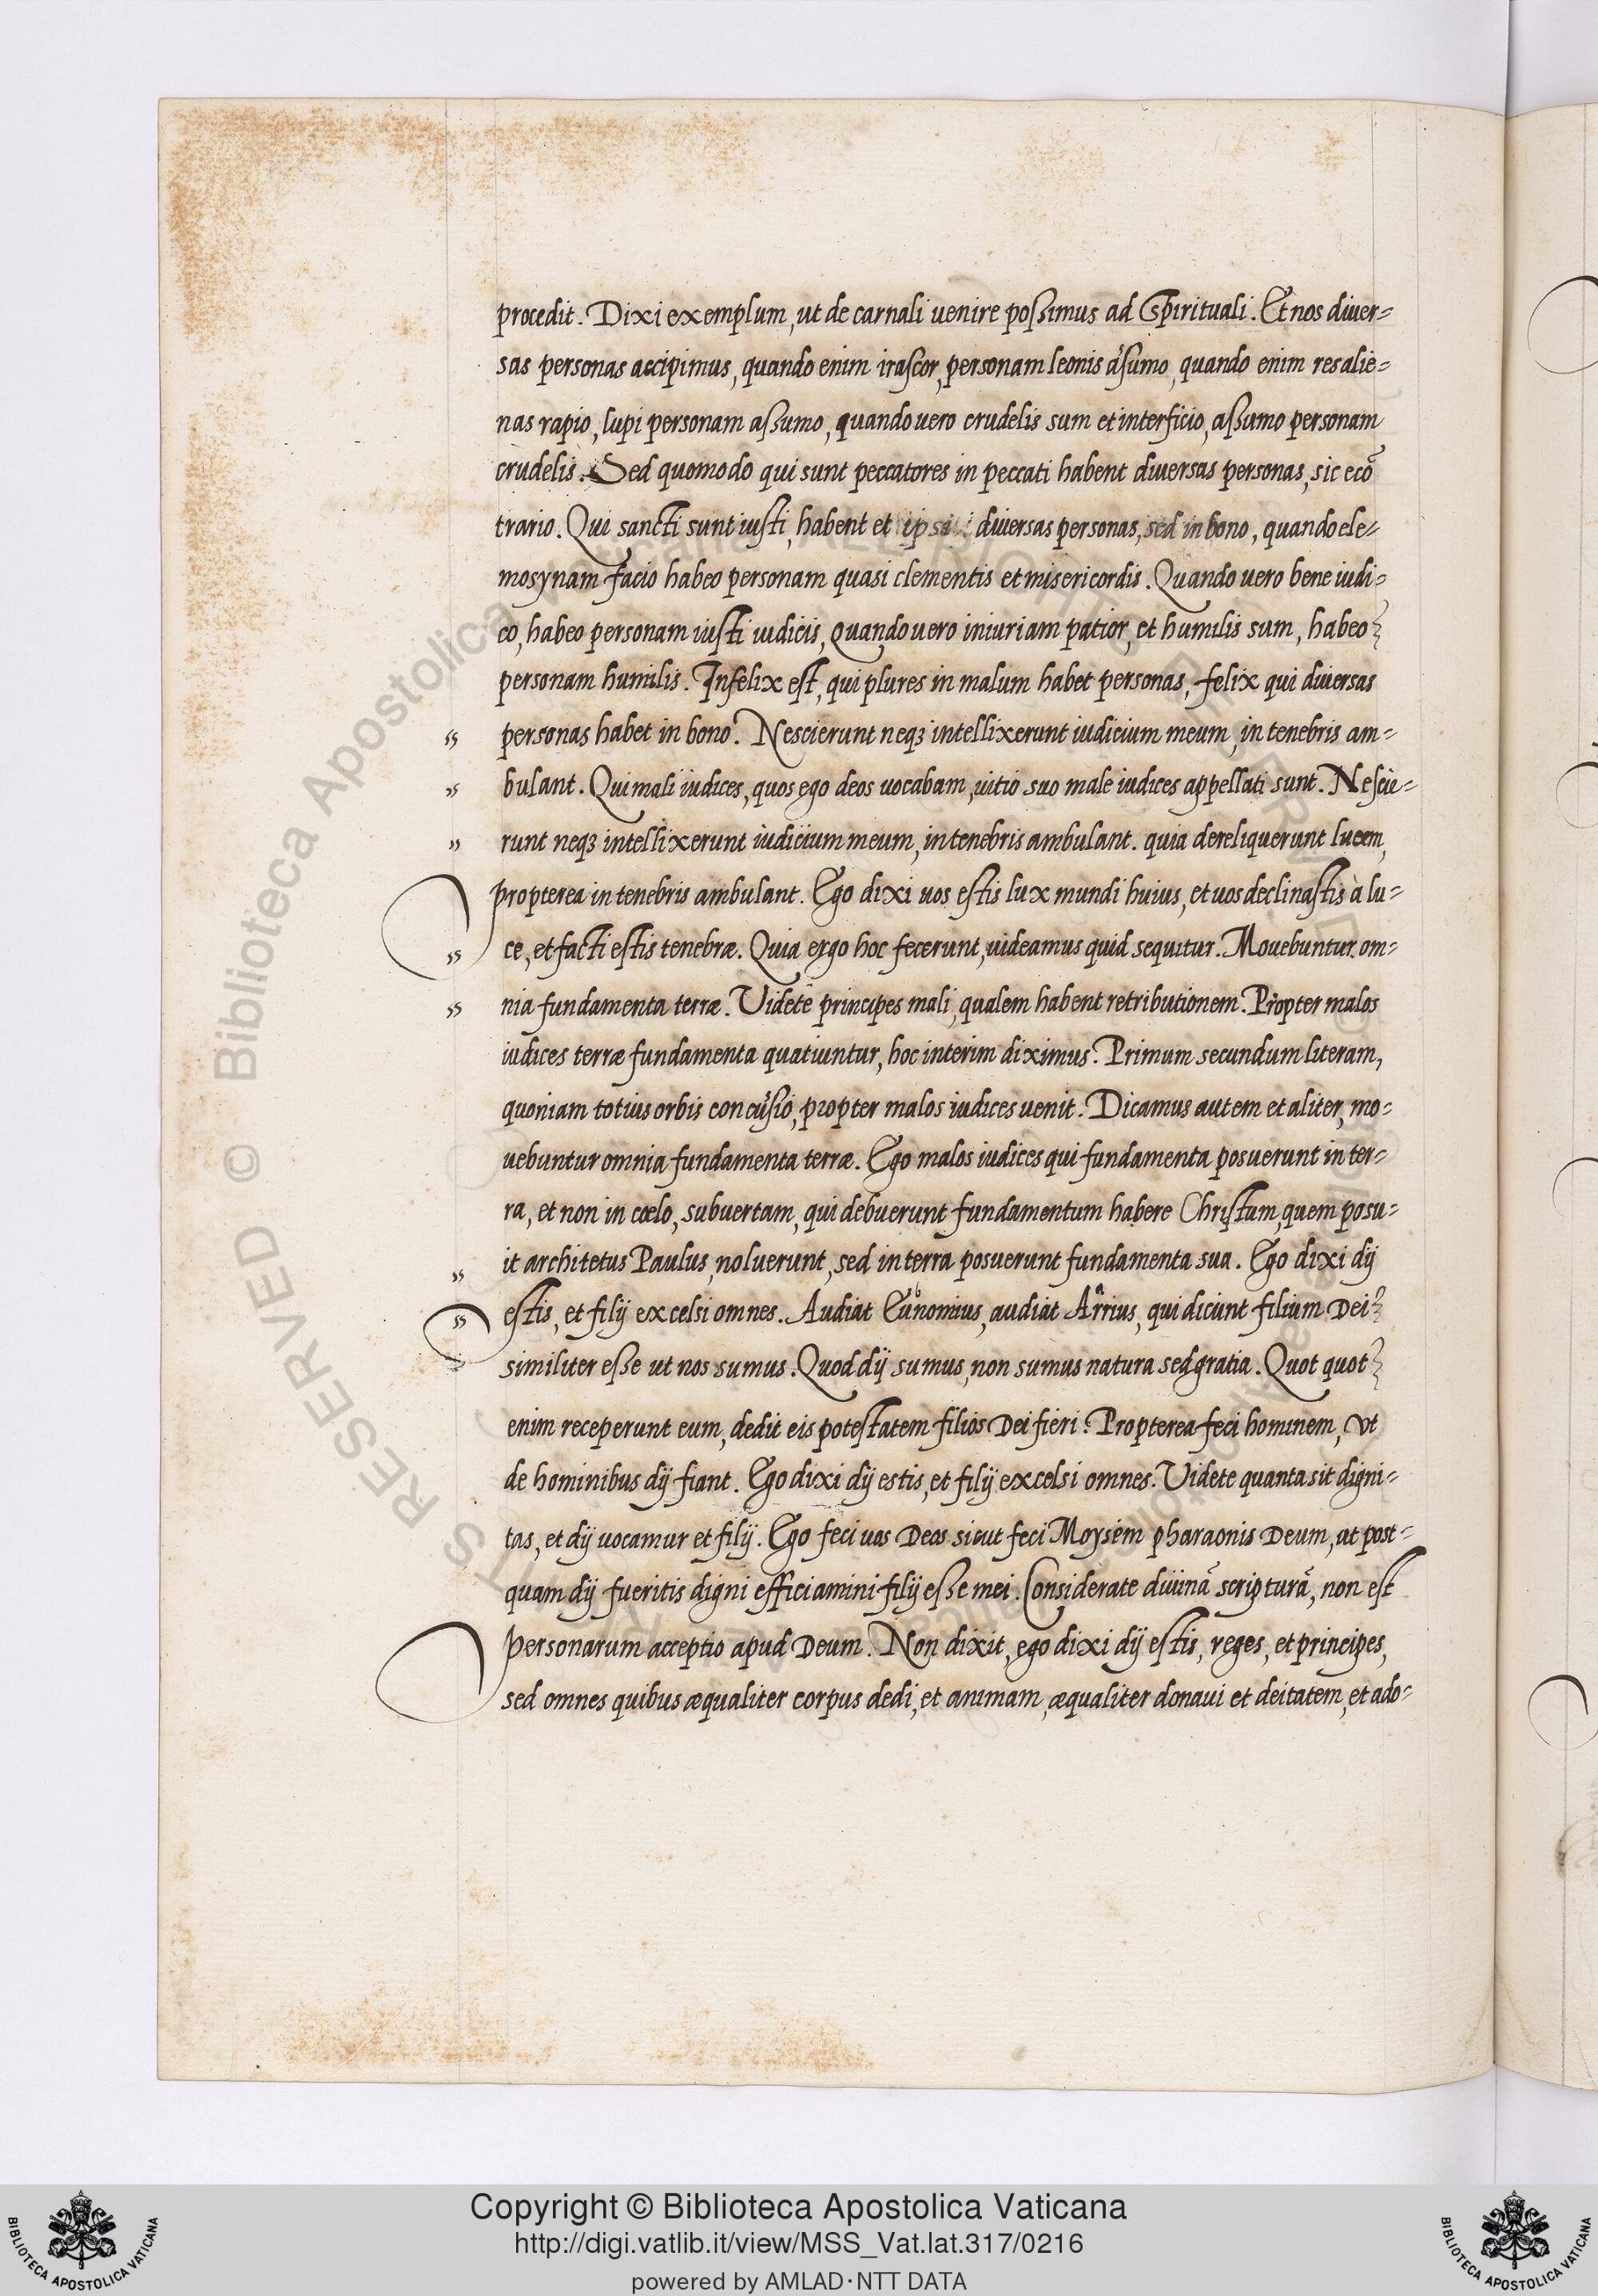 procedit. Dixi exemplum, ut de carnali uenire possimus ad Spirituali. Et nos diuer=
sas personas accipimus, quando enim irascor, personam leonis assumo, quando enim res alie=
nas rapio, lupi personam assumo, quando uero crudelis sum et interficio, assumo personam
crudelis. Sed quomodo qui sunt peccatores in peccati habent diuersas personas, sic ecō
trario. Qui sancti sunt iusti, habent et ipsi diuersas personas, sed in bono, quando ele=
mosynam facio habeo personam quasi clementis et misericordis. Quando uero bene iudi=
co, habeo personam iusti iudicis, Quando uero iniuriam patior, et humilis sum, habeo
personam humilis. Infelix est, qui plures in malum habet personas, felix qui diuersas
personas habet in bono. Nescierunt neqꝫ intellixerunt iudicium meum, in tenebris am=
bulant. Qui mali iudices, quos ego deos uocabam, uitio suo male iudices appellati sunt. Nescie=
runt neqꝫ intellixerunt iudicium meum, in tenebris ambulant. quia dereliquerunt lucem,
propterea in tenebris ambulant. Ego dixi uos estis lux mundi huius, et uos declinastis à lu=
ce, et facti estis tenebræ. Quia ergo hoc fecerunt, uideamus quid sequitur. Mouebuntur om=
nia fundamenta terræ. Videte principes mali, qualem habent retributionem. Propter malos
iudices terræ fundamenta quatiuntur, hoc interim diximus. Primum secundum literam,
quoniam totius orbis concussio, propter malos iudices uenit. Dicamus autem et aliter, mo=
uebuntur omnia fundamenta terræ. Ego malos iudices qui fundamenta posuerunt in ter=
ra, et non in cœlo, subuertam, qui debuerunt fundamentum habere Christum, quem posu=
it architetus Paulus, noluerunt, sed in terra posuerunt fundamenta sua. Ego dixi dij
estis, et filij excelsi omnes. Audiat Eunomius, audiat Arrius, qui dicunt filium Dei
similiter esse ut nos sumus. Quod dij sumus, non sumus natura sed gratia. Quot quot
enim receperunt eum, dedit eis potestatem filios Dei fieri. Propterea feci hominem, Vt
de hominibus dij fiant. Ego dixi dij estis, et filij excelsi omnes. Videte quanta sit digni=
tas, et dij uocamur et filij. Ego feci uos Deos sicut feci Moysem pharaonis Deum, ut post=
quam dij fueritis digni efficiamini filij esse mei. Considerate diuinā scripturā, non est
personarum acceptio apud Deum. Non dixit, ego dixi dij estis, reges, et principes,
sed omnes quibus æqualiter corpus dedi, et animam, æqualiter donaui et deitatem, et ado=
© Biblioteca Apostolica Vaticana
Copyright © Biblioteca Apostolica Vaticana
http://digi.vatlib.it/view/MSS_Vat.lat.317/0216
powered by AMLAD·NTT DATA
BIBLIOTECA APOSTOLICA VATICANA
BIBLIOTECA APOSTOLICA VATICANA